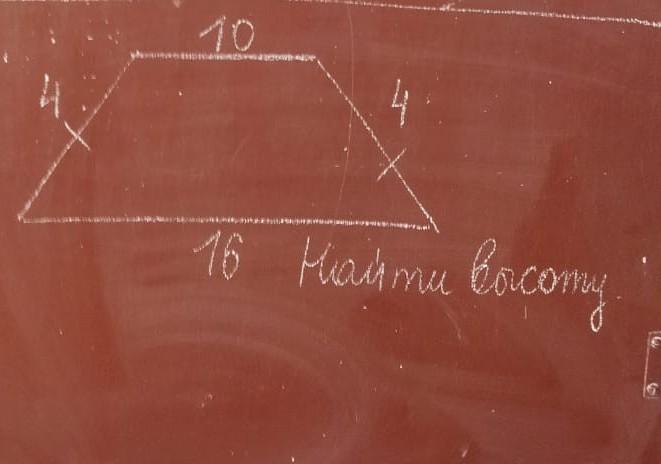 10
4 4
16 Найти высоту